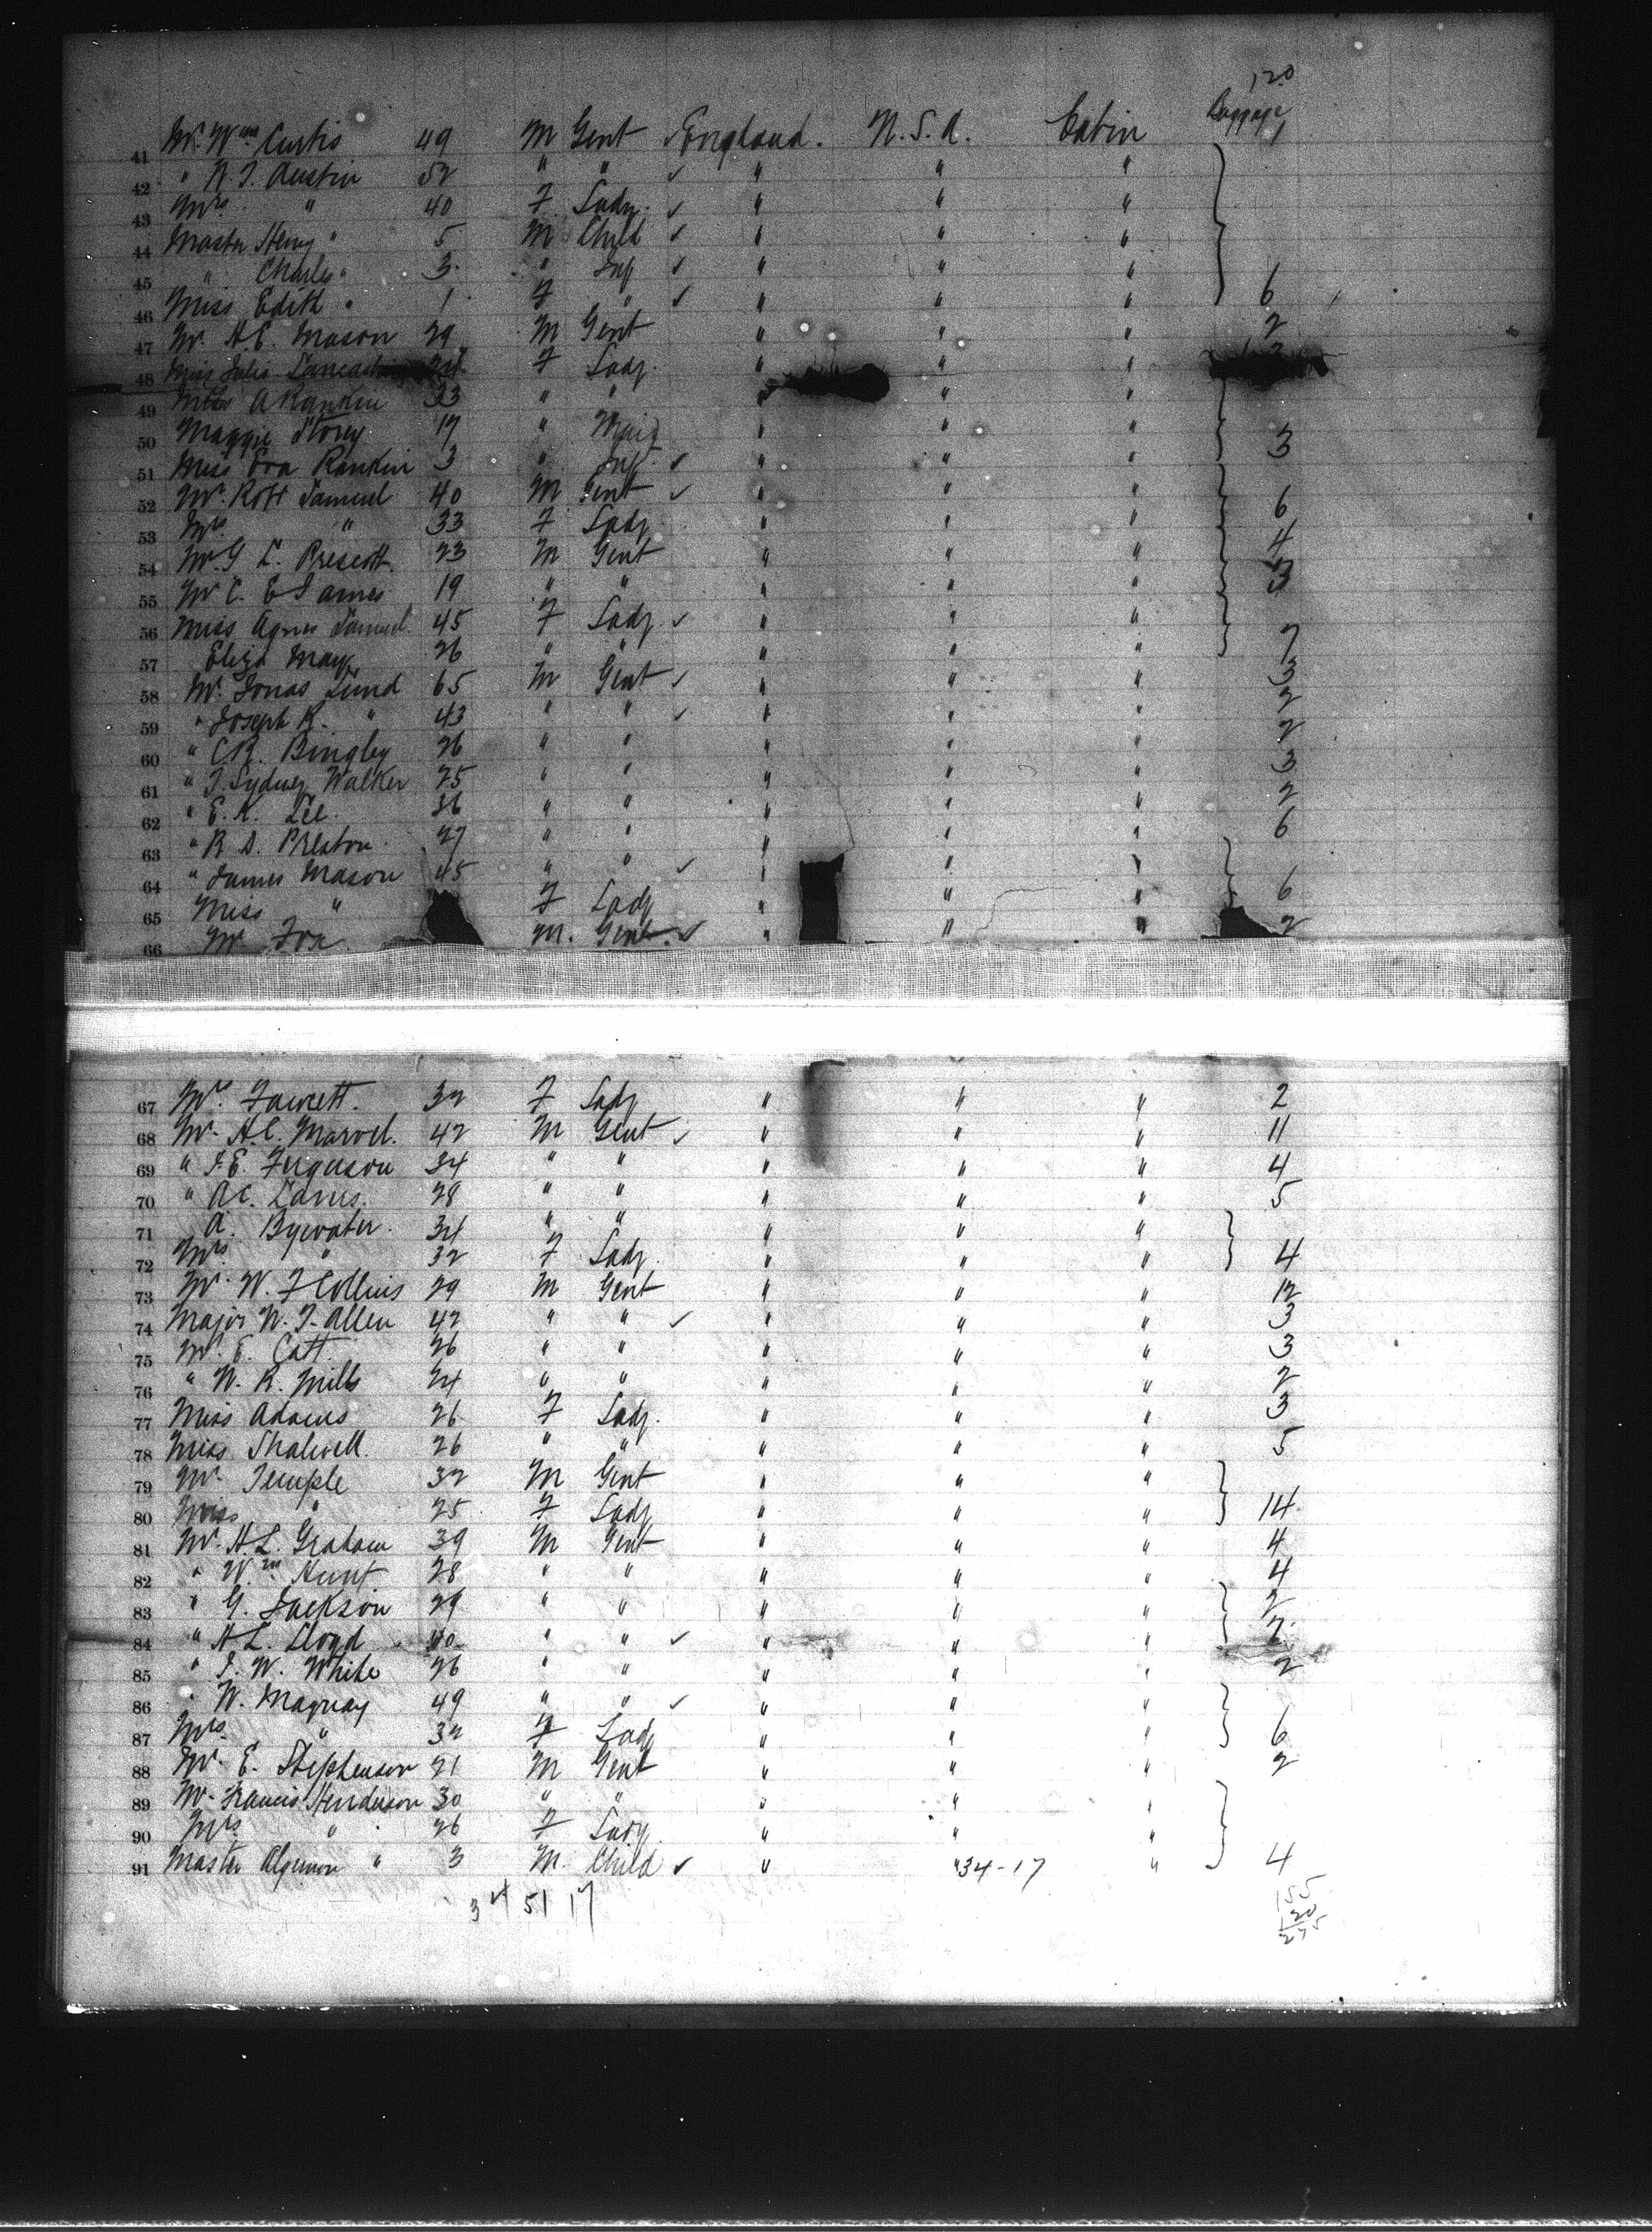 120
Baggage
41 Mr. Wm Curtis 49 M Gent ✓ England. U.S.A. Cabin 1
42 " N. J. Austin 52 " " ✓ " " "
43 Mrs. " 40 F Lady. ✓ " " "
44 Master Henry " 5 M Child ✓ " " "
45 " Charles " 3 " Inf ✓ " " "
46 Miss Edith " 1 F " ✓ " " " 6
47 Mr. H. E. Mason 29 M Gent " " " 2
48 Miss Julia F Lady. " "
49 A Rankin 33 " " " " "
50 Maggie Storey 19 " Maid " " " 3
51 Miss Eva Rankin 3 " Inf. ✓ " " "
52 Mr. Robt Samuel 40 M Gent ✓ " " " 6
53 Mrs " 33 F Lady. " " "
54 Mr. G L. Prescott. 23 M Gent " " " 4
55 Mr C. E James 19 " " " " " 3
56 Miss Agnes Samuel. 45 F Lady. ✓ " " "
57 Eliza May 26 " " " " " 7
58 Mr. Jonas Lund 65 M Gent ✓ " " " 3
59 " Joseph K. " 43 " " ✓ " " " 2
60 " C. R. Bingley 26 " " " " " 2
61 " J. Sydney Walker 25 " " " " " 3
62 " E. K. Lee. 36 " " " " " 2
63 " R S. Preston. 27 " " " " " 6
64 " James Mason 45 " " ✓ " " "
65 Miss " F Lady " " " 6
66 Mr Fox M. Gent. ✓ " " " 2
67 Mrs. Fawcett. 32 F Lady " " " 2
68 Mr. H. C. Marvel. 42 M Gent ✓ " " " 11
69 " J. E. Ferguson 34 " " " " " 4
70 " A C. 28 " " " " " 5
71 A. Bywater. 34 " " " " "
72 Mrs. " 32 F Lady. " " " 4
73 Mr. W. F Collins 29 M Gent " " " 12
74 Major W. J. Allen 42 " " ✓ " " " 3
75 Mr. E. Catt. 26 " " " " " 3
76 " W. R. Mills 24 " " " " " 2
77 Miss Adams 26 F Lady. " " " 3
78 Miss 26 " " " " " 5
79 Mr. Temple 32 M Gent " " "
80 Miss " 25 F Lady " " " 14
81 Mr. H L. Graham 39 M Gent " " " 4
82 " Wm Hunt 28 " " " " " 4
83 " G. Jackson 29 " " " " " 2
84 " H L. Lloyd " " ✓ " " " 2
85 " J. W. White 26 " " " " " 2
86 " W. Maquay 49 " " ✓ " " "
87 Mrs. " 32 F Lady " " " 6
88 Mr. E. Stephenson 21 M Gent " " " 2
89 Mr. Francis Henderson 30 " " " " "
90 Mrs. " 26 F Lady. " " "
91 Master Algernon " 3 M. Child ✓ " " 34-17 " 4
34 51 17
155
120
275